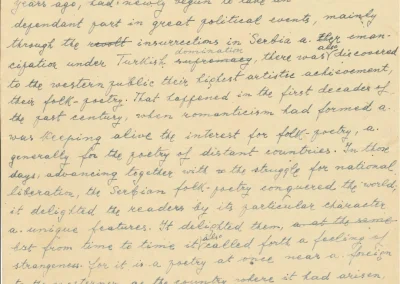 years ago, had newly begun to take an
dependant part in great political events, mainly
through the revolt insurrections in Serbia a. their eman-
domination
cipation under Turkish supremacy, there was also discovered
to the western public their highest artistic achievement,
their folk-poetry. That happened in the first decades of
the past century, when romanticism had formed a.
was keeping alive the interest for folk-poetry, a.
generally for the poetry of distant countries. In those
days, advancing together with the struggle for national
liberation, the Serbian folk-poetry conquered the world,
it delighted the readers by its particular character
a. unique features. It delighted them, a. at the same
but from time to time it also called forth a feeling of
strangeness. for it is a poetry at once near a. foreign
to the westerner, as the country where it had arisen,